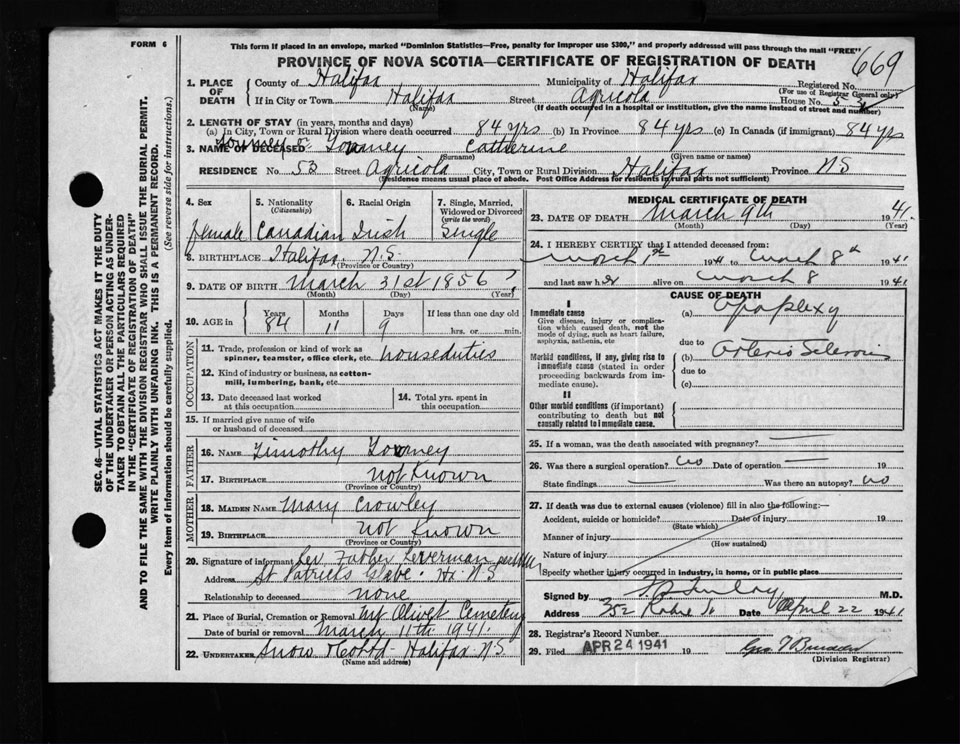 FORM 6
This form if placed in an envelope, marked "Dominion Statistics—Free, penalty for improper use $300," and properly addressed will pass through the mail "FREE"
PROVINCE OF NOVA SCOTIA—CERTIFICATE OF REGISTRATION OF DEATH
669
1. PLACE OF DEATH
County of Halifax Municipality of Halifax Registered No.
(For use of Registrar General only)
If in City or Town Halifax Street Agricola House No. 53
(Name) (If death occurred in a hospital or institution, give the name instead of street and number)
2. LENGTH OF STAY (in years, months and days)
(a) In City, Town or Rural Division where death occurred 84 yrs (b) In Province 84 yrs (c) In Canada (if immigrant) 84 yrs
3. NAME OF DECEASED Catherine
(Surname) (Given name or names)
RESIDENCE No. 53 Street Agricola City, Town or Rural Division Halifax Province NS
(Residence means usual place of abode. Post Office Address for residents in rural parts not sufficient)
4. Sex
female
5. Nationality
(Citizenship)
Canadian
6. Racial Origin
Irish
7. Single, Married, Widowed or Divorced
(write the word)
Single
8. BIRTHPLACE Halifax N.S.
(Province or Country)
9. DATE OF BIRTH March 31st 1856 ?
(Month) (Day) (Year)
10. AGE in Years Months Days If less than one day old
84 11 9 hrs. or min.
OCCUPATION
11. Trade, profession or kind of work as spinner, teamster, office clerk, etc. houseduties
12. Kind of industry or business, as cotton-mill, lumbering, bank, etc.
13. Date deceased last worked at this occupation
14. Total yrs. spent in this occupation
15. If married give name of wife or husband of deceased
FATHER
16. NAME Timothy
17. BIRTHPLACE not known
(Province or Country)
MOTHER
18. MAIDEN NAME Mary Crowley
19. BIRTHPLACE not known
(Province or Country)
20. Signature of informant Rev Father
Address St Patricks Glebe Hx NS
Relationship to deceased none
21. Place of Burial, Cremation or Removal Mt Olivet Cemetery
Date of burial or removal March 11th 1941
22. UNDERTAKER Snow & Co Ltd - Halifax NS
(Name and address)
MEDICAL CERTIFICATE OF DEATH
23. DATE OF DEATH March 9th 1941.
(Month) (Day) (Year)
24. I HEREBY CERTIFY that I attended deceased from:
March 1st 1941 to March 8th 1941
and last saw her alive on March 8 1941
CAUSE OF DEATH
I
Immediate cause
Give disease, injury or complication which caused death, not the mode of dying, such as heart failure, asphyxia, asthenia, etc
(a) Apoplexy
due to
Morbid conditions, if any, giving rise to immediate cause (stated in order proceeding backwards from immediate cause).
(b) Arterio Sclerosis
due to
(c)
II
Other morbid conditions (if important) contributing to death but not causally related to immediate cause.
25. If a woman, was the death associated with pregnancy? —
26. Was there a surgical operation? no Date of operation — 19
State findings — Was there an autopsy? no
27. If death was due to external causes (violence) fill in also the following:—
Accident, suicide or homicide? Date of injury 19
(State which)
Manner of injury
(How sustained)
Nature of injury
Specify whether injury occurred in industry, in home, or in public place
Signed by M.D.
Address Date April 22 1941
28. Registrar's Record Number
29. Filed APR 24 1941 19
(Division Registrar)
SEC. 46—VITAL STATISTICS ACT MAKES IT THE DUTY
OF THE UNDERTAKER OR PERSON ACTING AS UNDER-
TAKER TO OBTAIN ALL THE PARTICULARS REQUIRED
IN THE "CERTIFICATE OF REGISTRATION OF DEATH"
AND TO FILE THE SAME WITH THE DIVISION REGISTRAR WHO SHALL ISSUE THE BURIAL PERMIT.
WRITE PLAINLY WITH UNFADING INK. THIS IS A PERMANENT RECORD.
Every item of information should be carefully supplied. (See reverse side for instructions.)